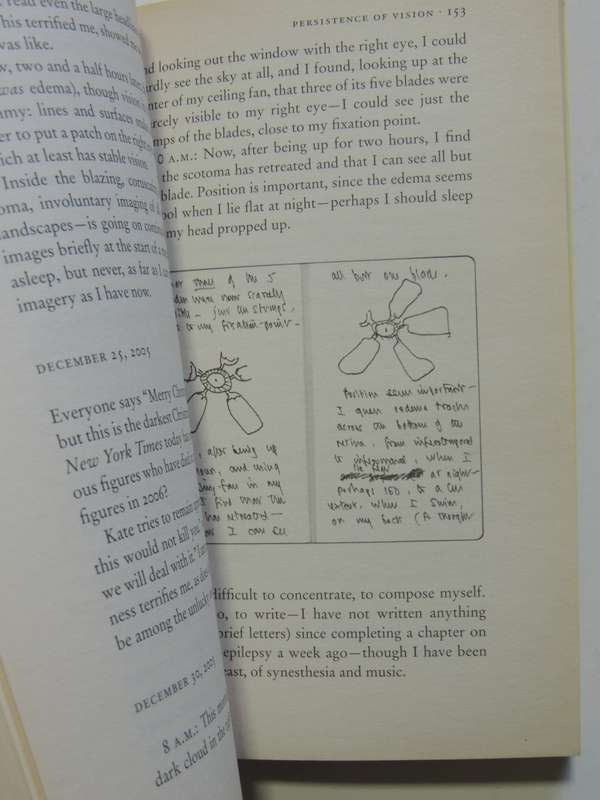 read even the large headli
This terrified me, showed me
was like.
two and a half hours later
was edema), though vision
my: lines and surfaces
er to put a patch on the right
ich at least has stable vision.
Inside the blazing,
oma, involuntary imaging of
landscapes—is going on
images briefly at the start of a
asleep, but never, as far as I can
imagery as I have now.
DECEMBER 25, 2005
Everyone says "Merry Chr
but this is the darkest Christ
New York Times today
ous figures who have
figures in 2006?
Kate tries to remain
this would not kill you
we will deal with it."
ness terrifies me, as
be among the unlucky
DECEMBER 30, 2005
8 A.M.: This
dark cloud in the
PERSISTENCE OF VISION · 153
nd looking out the window with the right eye, I could
rdly see the sky at all, and I found, looking up at the
nter of my ceiling fan, that three of its five blades were
rcely visible to my right eye—I could see just the
mps of the blades, close to my fixation point.
0 A.M.: Now, after being up for two hours, I find
the scotoma has retreated and that I can see all but
blade. Position is important, since the edema seems
ool when I lie flat at night—perhaps I should sleep
my head propped up.
three of the 5
were now scarcely
– just the stumps,
to my fixation-point–
after being up
hour, and using
fan in my
I find that the
has retreated—
I can see
all but one blade.
Position seems important—
I guess edema tracks
across the bottom of the
retina, from inferotemporal
to inferonasal, when I
at night—
perhaps also, to a
extent, when I swim,
on my back (A thought
difficult to concentrate, to compose myself.
o, to write—I have not written anything
brief letters) since completing a chapter on
epilepsy a week ago—though I have been
east, of synesthesia and music.